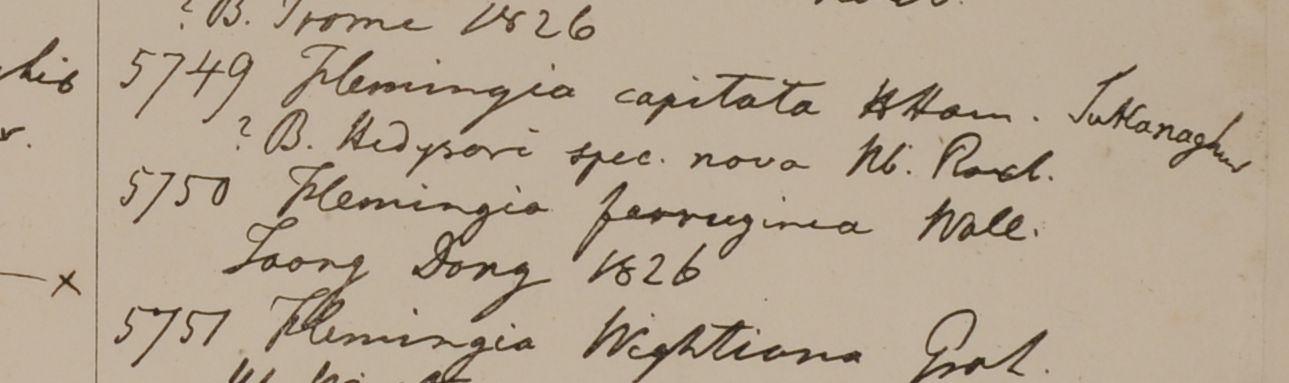 ? B. Prome 1826
5749 Flemingia capitata HHam. Sukanaghur
? B. Hedysari spec. nova Hb. Roxb.
5750 Flemingia ferruginea Wall.
Taong Dong 1826
5751 Flemingia Wightiana Grah.